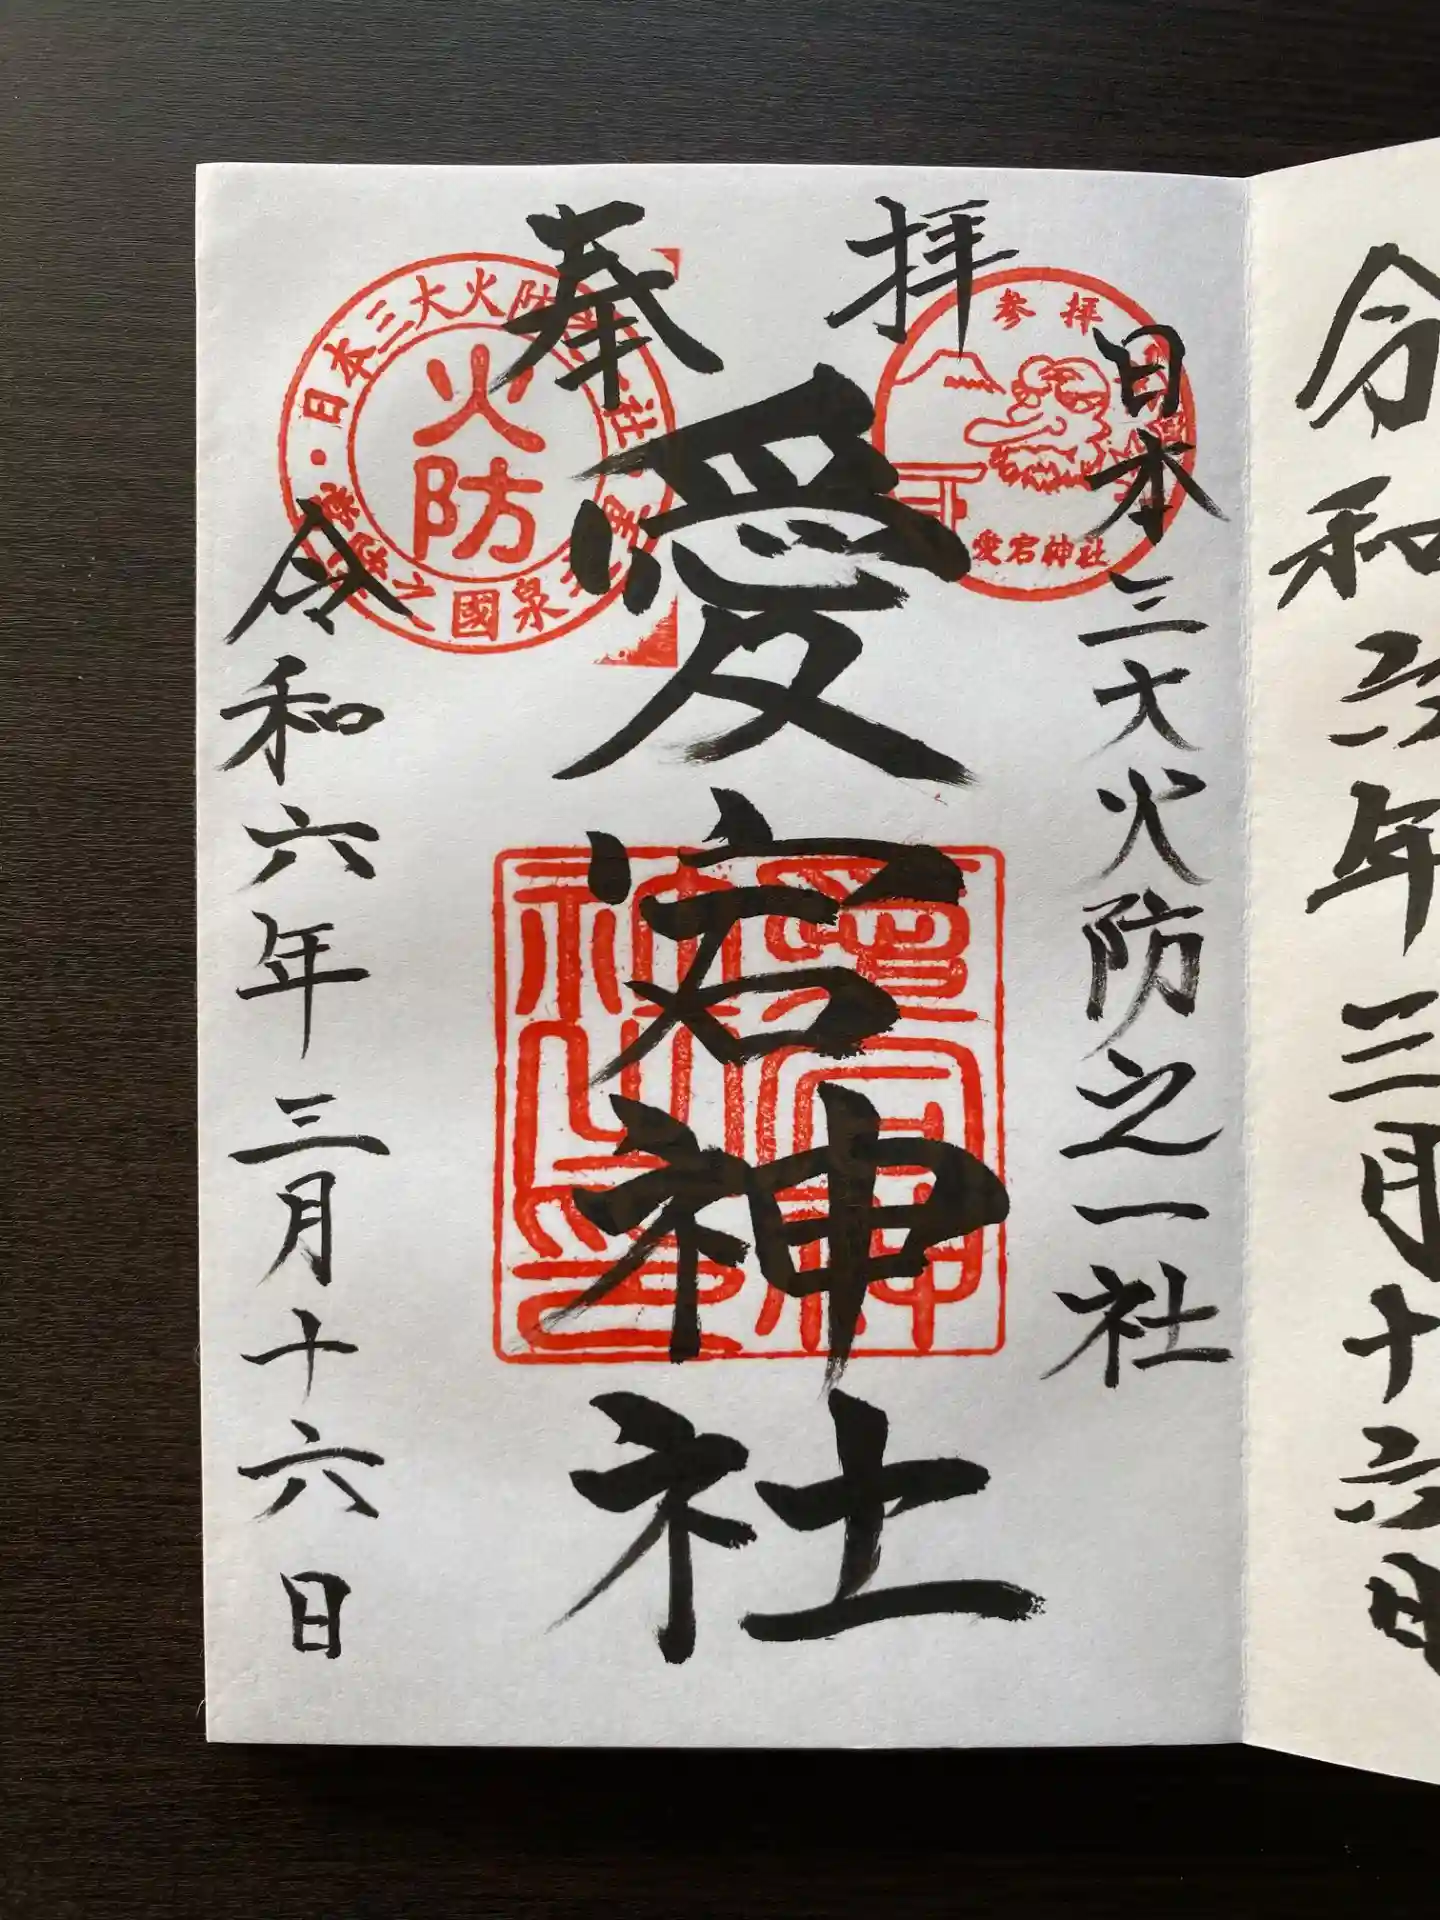 令和六年三月十六日
奉拝
日本三大火防之一社
愛宕神社
令和六年三月十六日
参拝
愛宕神社
日本三大火防
火防
國泉
愛宕神社之印